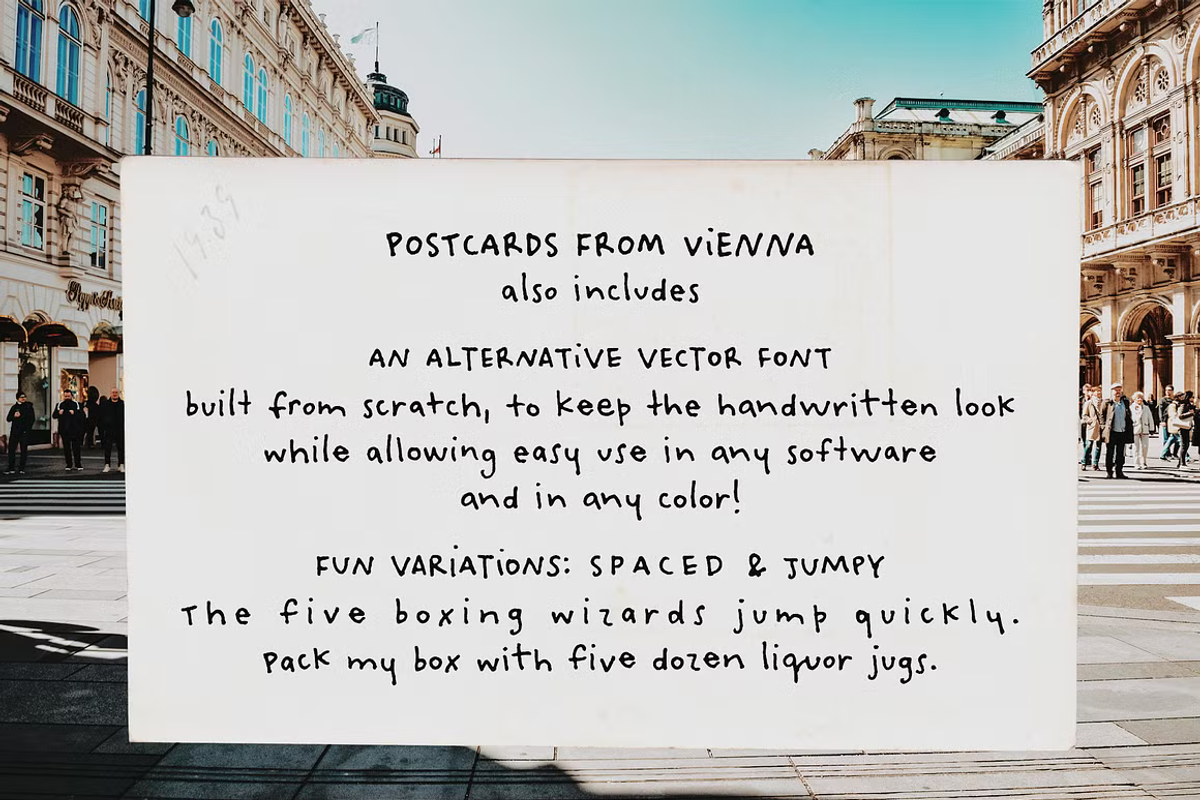 19.39
POSTCARDS FROM ViENNA
also includes
AN ALTERNATiVE VECTOR FONT
built from scratch, to keep the handwritten look
while allowing easy use in any software
and in any color!
FUN VARiATiONS: SPACED & JUMPY
The five boxing wizards jump quickly.
Pack my box with five dozen liquor jugs.